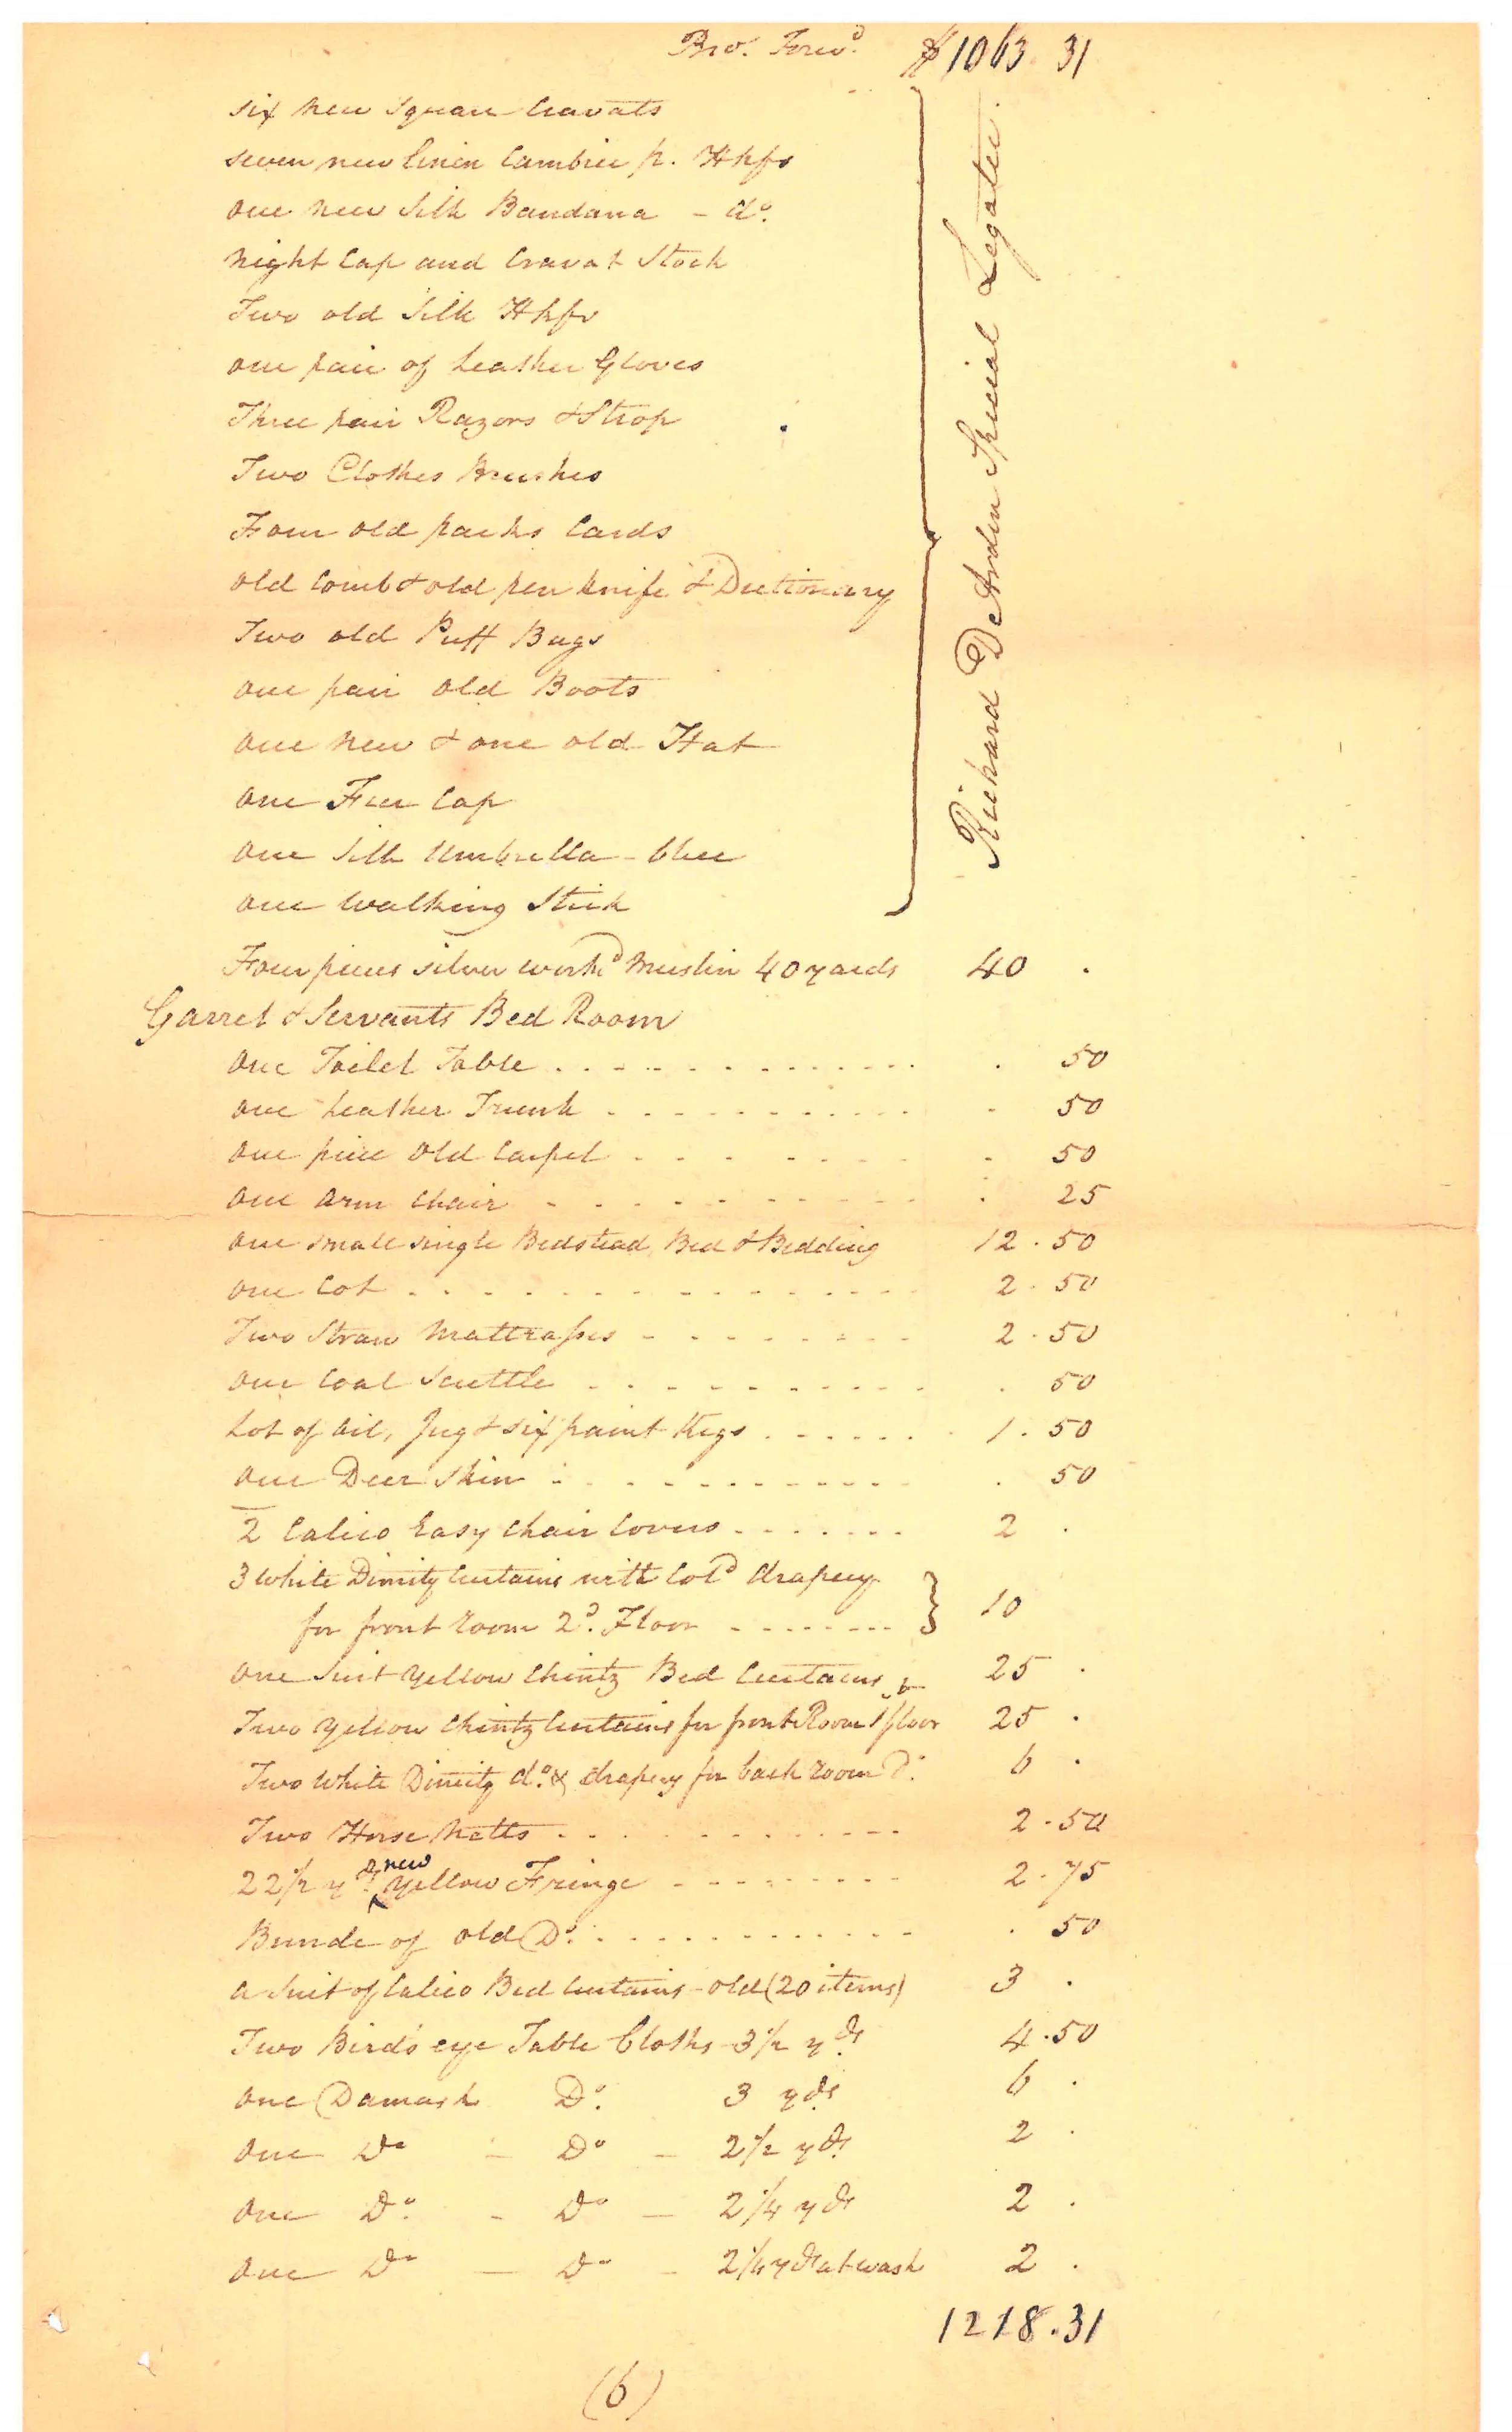 Bro. Forwd. $1063.31
six new square Cravats
seven new linen Cambric p. Hkfs
one new Silk Bandana - do.
night Cap and Cravat Stock
Two old Silk Hkfs
one pair of Leather Gloves
Three pair Razors & Strop
Two Clothes Brushes
Four old packs Cards
old Comb & old pen knife & Dictionary
Two old Puff Bags
one pair old Boots
one new & one old Hat
one Fur Cap
one Silk Umbrella - blue
one Walking Stick
Richard DeArden Special Legatee.
Four pieces silver workd Muslin 40 yards 40 .
Garret & Servants Bed Room
one Toilet Table . 50
one Leather Trunk . 50
one piece old Carpet . 50
one arm Chair . 25
one small single Bedstead, Bed & Bedding 12.50
one Cot 2.50
Two Straw Mattrasses 2.50
one Coal Scuttle . 50
Lot of Oil, Jug & six paint Kegs 1.50
one Deer Skin . 50
2 Calico Easy Chair Covers 2 .
3 White Dimity Curtains with Cold drapery
for front room 2d. Floor } 10
one Suit Yellow Chintz Bed Curtains & 25 .
Two Yellow Chintz Curtains for front Room 1 floor 25 .
Two White Dimity do. & drapery for back room Do. 6 .
Two Horse Netts 2.50
22 1/2 yds. new yellow Fringe 2.75
Bunde of old Do. . 50
a Suit of Calico Bed Curtains - old (20 items) 3 .
Two Birds eye Table Cloths - 3 1/2 yds 4.50
one Damask Do. 3 yds 6 .
one Do - Do - 2 1/2 yds 2 .
one Do. - Do - 2 1/4 yds 2 .
one Do - Do - 2 1/4 yds at wash 2 .
1218.31
(6)